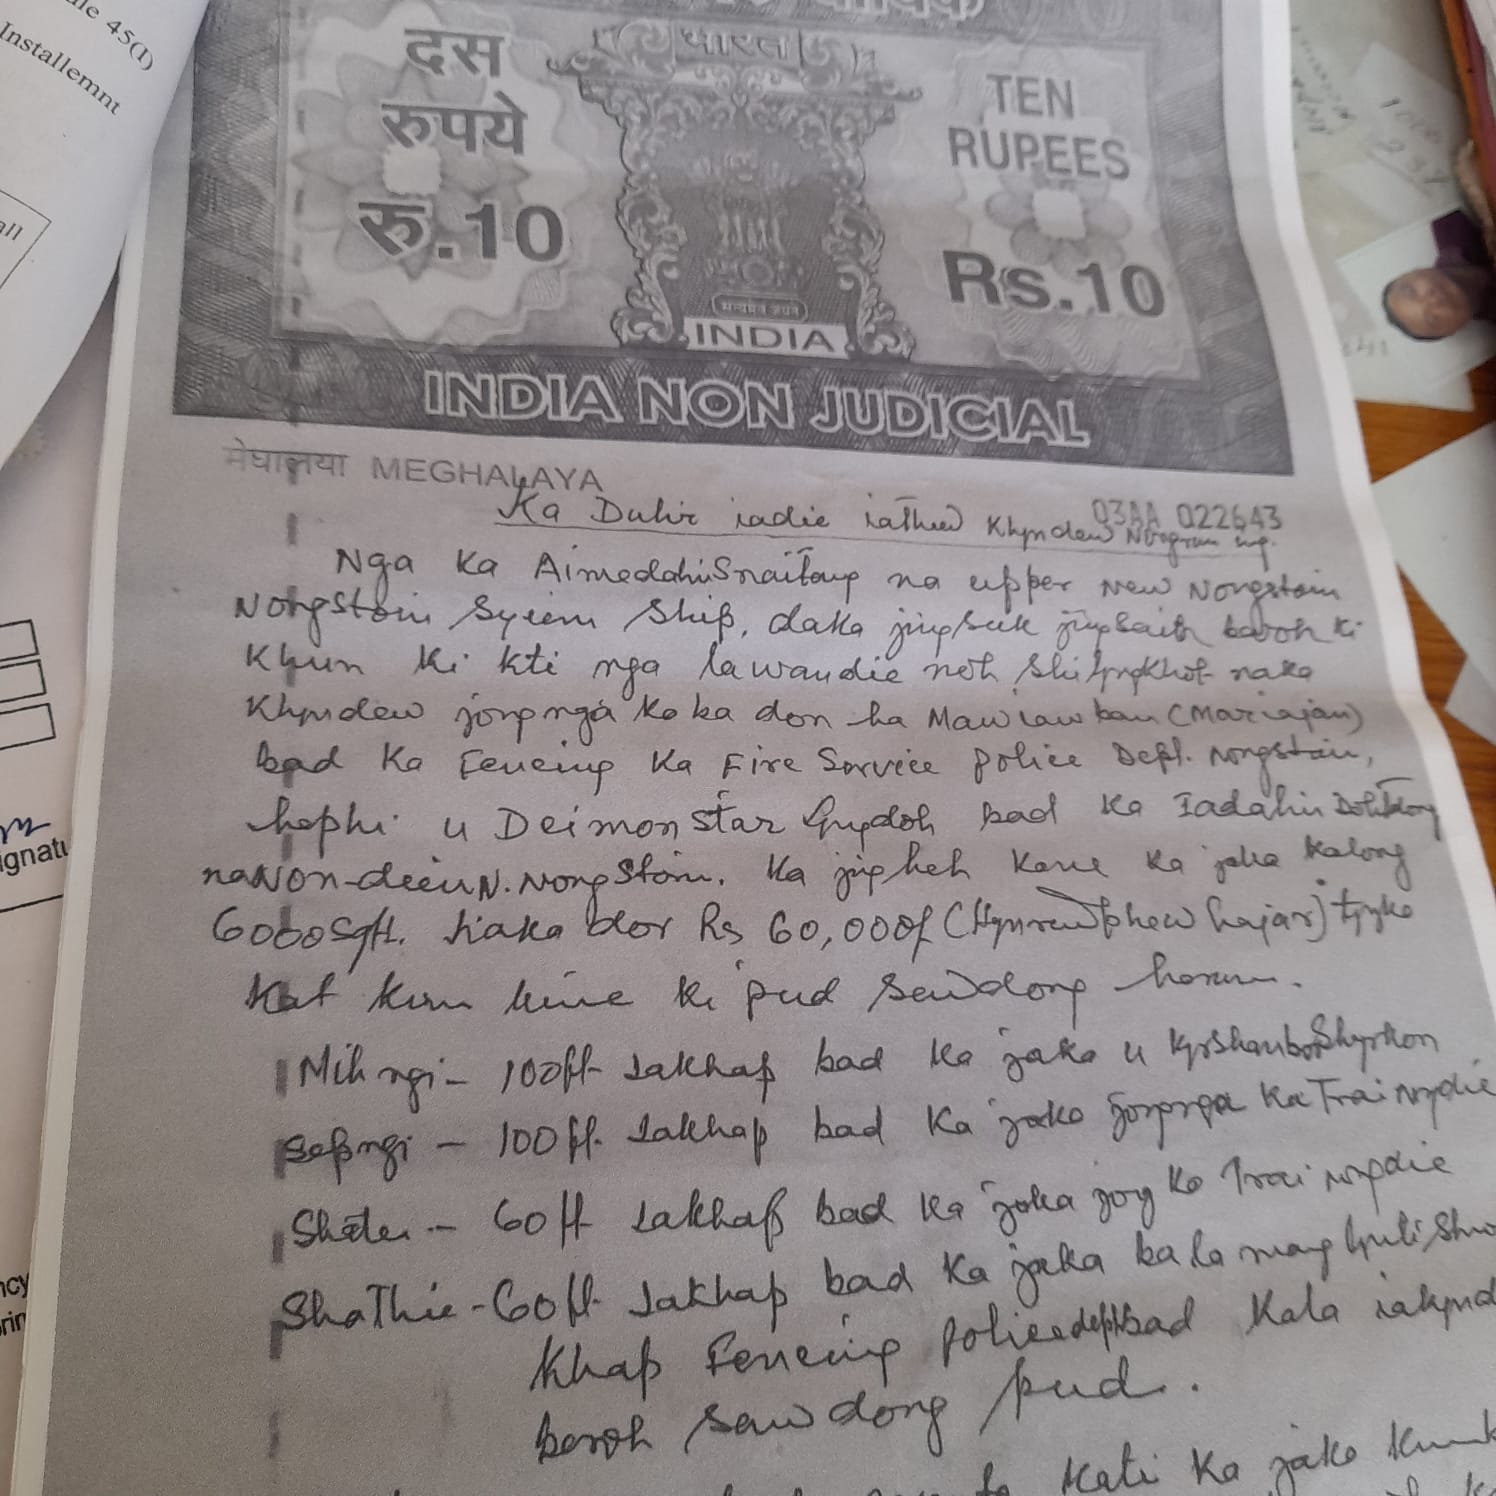 ule 45(I)
Installemnt
all
ignatu
दस
रुपये
रु.10
भारत
TEN
RUPEES
Rs.10
सत्यमेव जयते
INDIA
INDIA NON JUDICIAL
मेघालया MEGHALAYA
03AA 022643
Ka Dulir iadie iathied Khyndew Nongrum ing.
Nga Ka Aimedahun Snaitang na upper New Nongstoin
Nongstoin Syiem Ship, daka jingsuk jingbaith baroh ki
Khun ki kti nga la wan die noh shi lyngkhot naka
Khyndew jong nga ka ba don ha Mawiawban (Mariajan)
bad Ka Fencing Ka Fire Service police Deptt. Nongstoin,
haphi u Deimonstar Lyngdoh bad ka Iadahun Dohtdong
na Non-dein N. Nongstoin. Ka jingheh kane ka jaka kalong
6000 Sqft. haka dor Rs 60,000/ (Hynriewphew hajar) tyngka
Kat kum kine ki pud sawdong harum.
Mihngi - 100ft Iakhap bad ka jaka u Kyrshanbor Shyrkon
Sepngi - 100ft. Iakhap bad Ka jaka jongnga Ka Trai nongdie
Shatei - 60ft Iakhap bad ka jaka jong ka Trai nongdie
Shathie - 60ft Iakhap bad ka jaka ba la mang
Khap Fencing police deptt bad Kala iakynd
baroh sawdong pud.
Kati Ka jaka